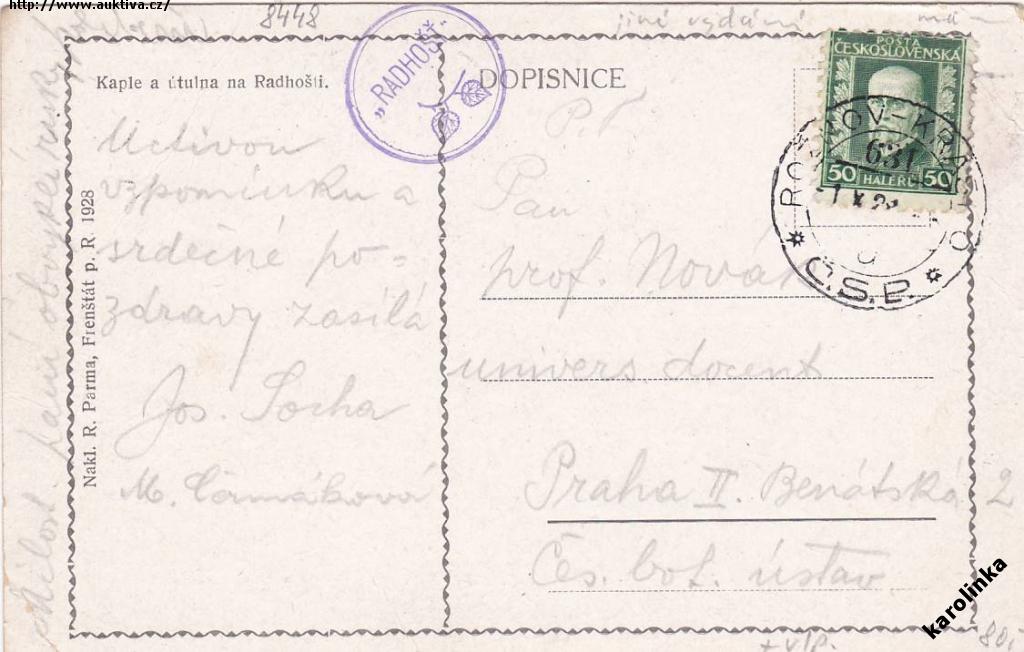 http://www.auktiva.cz/
8448
jiné vydání
Kaple a útulna na Radhošti.
„RADHOŠŤ"
DOPISNICE
POŠTA
ČESKOSLOVENSKÁ
50 HALÉŘŮ 50
ROŽNOV-KRÁSNO
631
Č.S.P.
Uctivou
vzpomínku a
srdečné po-
zdravy zasílá
Jos. Socha
M. Čermáková
Nakl. R. Parma, Frenštát p. R. 1928
P.T.
Pan
prof. Novák
univers. docent
Praha II. Benátská 2
Čes. bot. ústav
karolinka
80,-